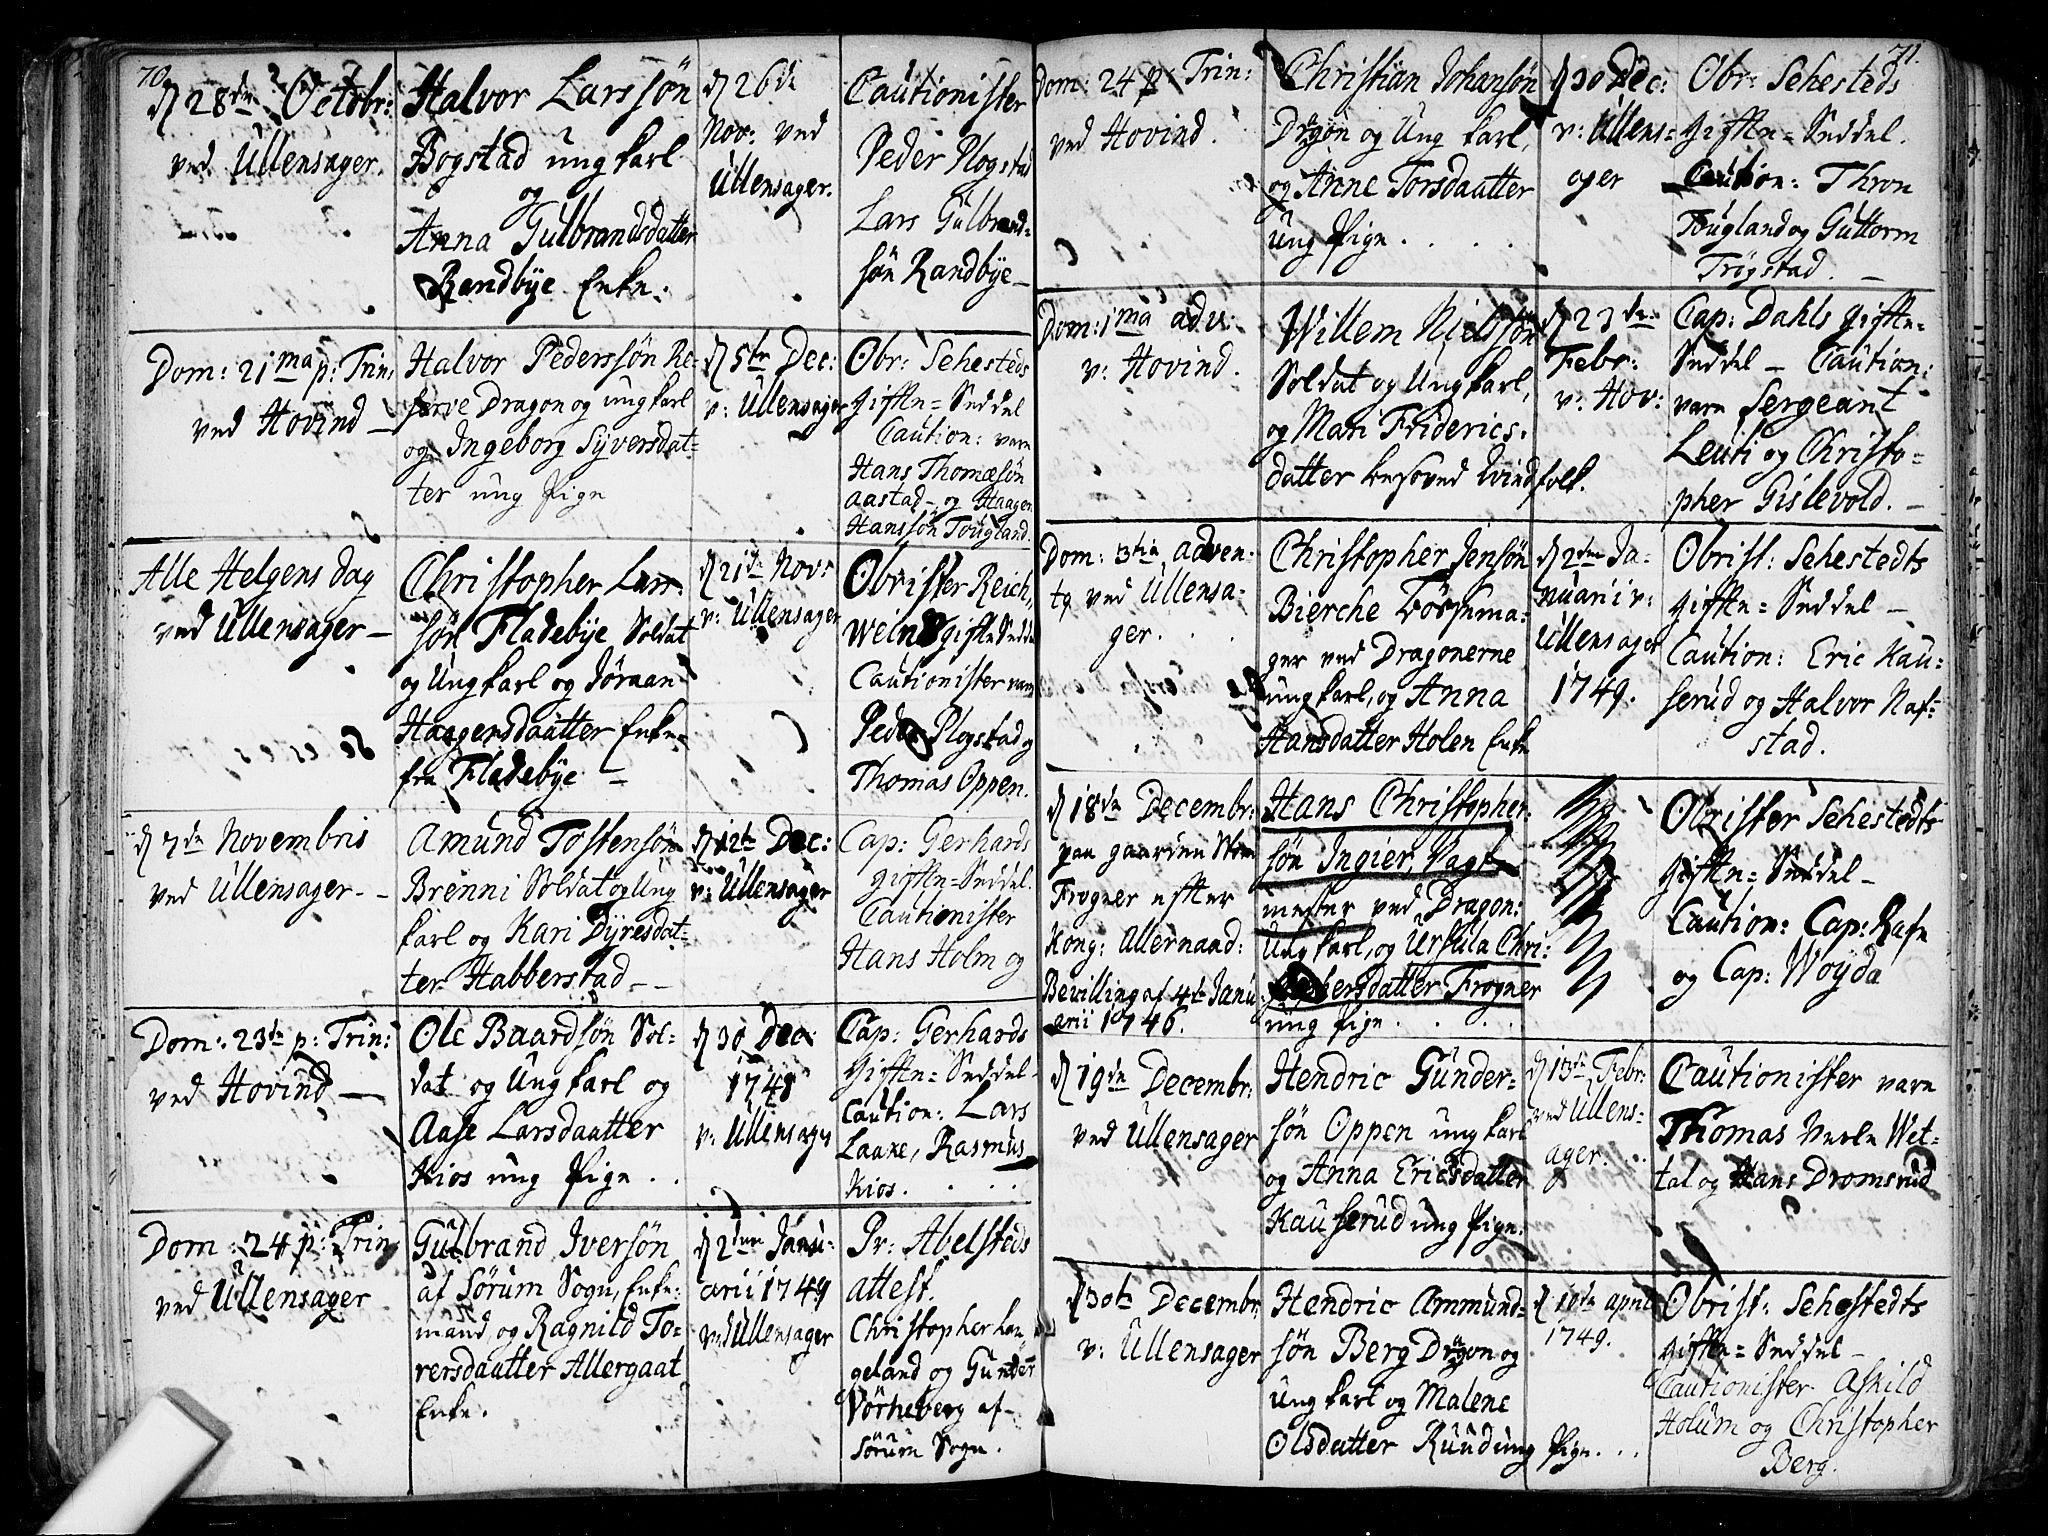 70.
d 28de Octobr:
ved Ullensager.
Halvor Larssøn
Bogstad ung karl
og
Anna Gulbrandsdatter
Randbÿe Enke.
d 26de
Nov: ved
Ullensager.
Cautionister
Peder Plogstad
Lars Gulbrand-
søn Randbÿe
Dom: 21ma p: Trin:
ved Hovind
Halvor Pederssøn Re-
serve Dragon og ung karl
og Ingeborg Syversdat-
ter ung Pige
d 5te Dec:
v: Ullensager
Obr: Sehesteds
Gifte-Seddel
Caution: vare
Hans Thomæsøn
Aastad og Haagen
Hanssøn Tougland.
Alle Helgens dag
ved Ullensager
Christopher Lars-
søn Fladebÿe Soldat
og Ung karl og Jøraan
Haagensdaatter Enke
fra Fladebÿe
d 21de Nov:
v: Ullensager
Obrister Reich-
weins gifte Seddel
Cautionister vare
Peder Plogstad og
Thomas Oppen.
d 7de Novembris
ved Ullensager
Amund Tostensøn
Brenni Soldat og Ung
karl og Kari Dÿresdat-
ter Habberstad
d 12te Dec:
v: Ullensager
Cap: Gerhards
gifte-Seddel.
Cautionister
Hans Holm og
Dom: 23de p: Trin:
ved Hovind
Ole Baardsøn Sol-
dat og Ung karl og
Aase Larsdaatter
Kios ung Pige
d 30 Dec:
1748
v: Ullensager
Cap: Gerhards
Gifte-Seddel
Caution: Lars
Laake, Rasmus
Kios.
Dom: 24 p: Trin:
ved Ullensager
Gulbrand Iversøn
af Sørum Sogn, Enke-
mand, og Ragnild To-
rersdaatter Allergaat
Enke.
d 2den Janu-
arii 1749
ved Ullensager
Pr: Abelsteds
attest.
Christopher Hau
geland og Gunder
Vørheberg af
Sørum Sogn.
71.
Dom: 24 p: Trin:
ved Hovind.
Christian Johansøn
Dragon og Ung karl,
og Anne Torsdaatter
Ung Pige.
d 30 Dec:
v: Ullens-
ager
Obr: Sehesteds
Gifte-Seddel.
Caution: Thron
Tougland og Guttorm
Trøgstad.
Dom: 1ma adv:
v: Hovind.
Willem Nielsøn
Soldat og Ung karl,
og Mari Friderics-
datter besoved Qvindfolk.
d 23de
Febr:
v: Hov:
Cap: Dahls gifte-
Seddel - Caution:
vare Sergeant
Leuti og Christo-
pher Gislevold.
Dom: 3tia adven-
tq ved Ullensa-
ger.
Christopher Jensøn
Bierche Bøsema-
ger ved Dragonerne
ung karl, og Anna
Hansdatter Holen Enke
d 2den Ja-
nuarii v:
Ullensager
1749.
Obrist: Sehestedts
Gifte-Seddel
Caution: Eric Kau-
serud og Halvor Naf-
stad.
d 18de Decembr:
paa gaarden Store
Frogner efter
Kong: Allernaad:
Bevilling af 4te Janu-
arii 1746.
Hans Christopher-
søn Ingier, Vagt-
mester ved Dragon:
Ung karl, og Ursula Chri-
stophersdatter Frogner
ung Pige.
Obrister Sehestedts
Gifte-Seddel
Caution: Cap: Rafn
og Cap: Woyda
d 19de Decembr:
ved Ullensager
Hendric Gunder-
søn Oppen ung karl
og Anna Ericsdatter
Kauserud ung Pige.
d 13de Febr:
ved Ullens-
ager.
Cautionister vare
Thomas Wet-
tal og Hans Dromsrud
d 30te Decembr:
v: Ullensager
Hendric Ammund-
søn Berg Dragon og
Ung karl og Malene
Olsdatter Ruud ung Pige.
d 10te april
1749.
Obrist: Sehestedts
gifte-Seddel
Cautionister Askild
Holum og Christopher
Berg.